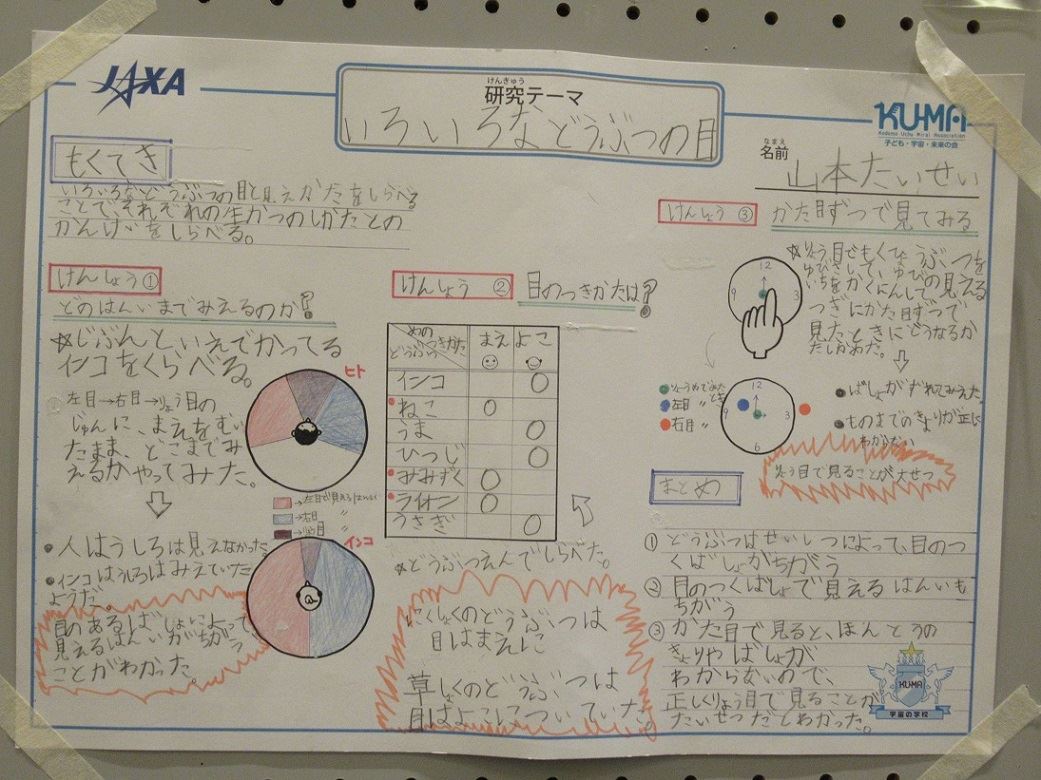 JAXA
けんきゅう
研究テーマ
いろいろなどうぶつの目
KU-MA
Kodomo Uchu Mirai Association
子ども・宇宙・未来の会
なまえ
名前
山本たいせい
もくてき
いろいろなどうぶつの目と見えかたをしらべる
ことでそれぞれの生かつのしかたとの
かんけいをしらべる。
けんしょう①
どのはんいまでみえるのか?
☆じぶんといえでかってる
インコをくらべる。
左目→右目→りょう目の
じゅんに、まえをむい
たまま、どこまでみ
えるかやってみた。
ヒト
→左目で見えるはんい
→右目 〃
→りょう目 〃
インコ
•人はうしろは見えなかった。
•インコはうしろはみえていた
ようだ。
目のあるばしょによって、
見えるはんいがちがう
ことがわかった。
けんしょう②
目のつきかたは?
めのつきかた
どうぶつ
まえ
よこ
インコ ○
ねこ ○
うま ○
ひつじ ○
みみずく ○
ライオン ○
うさぎ ○
☆どうぶつえんでしらべた。
にくしょくのどうぶつは
目はまえに
草しょくのどうぶつは
目はよこについていた。
けんしょう③
かた目ずつで見てみる
☆りょう目でもくひょうぶつを
ゆびさしてい、ゆびの見える
いちをかくにんして
つぎにかた目ずつで
見たときにどうなるか
たしかめた。
12
9
3
12
3
6
りょうめでみたとき
左目 〃
右目 〃
●ばしょがずれてみえた
●ものまでのきょりが正に
わからない
りょう目で見ることが大せつ
まとめ
①どうぶつはせいしつによって、目のつ
くばしょがちがう
②目のつくばしょで見えるはんいも
ちがう
③かた目で見ると、ほんとうの
きょりやばしょが
わからないので、
正しくりょう目で見ることが
たいせつだとわかった。
KU-MA
宇宙の学校